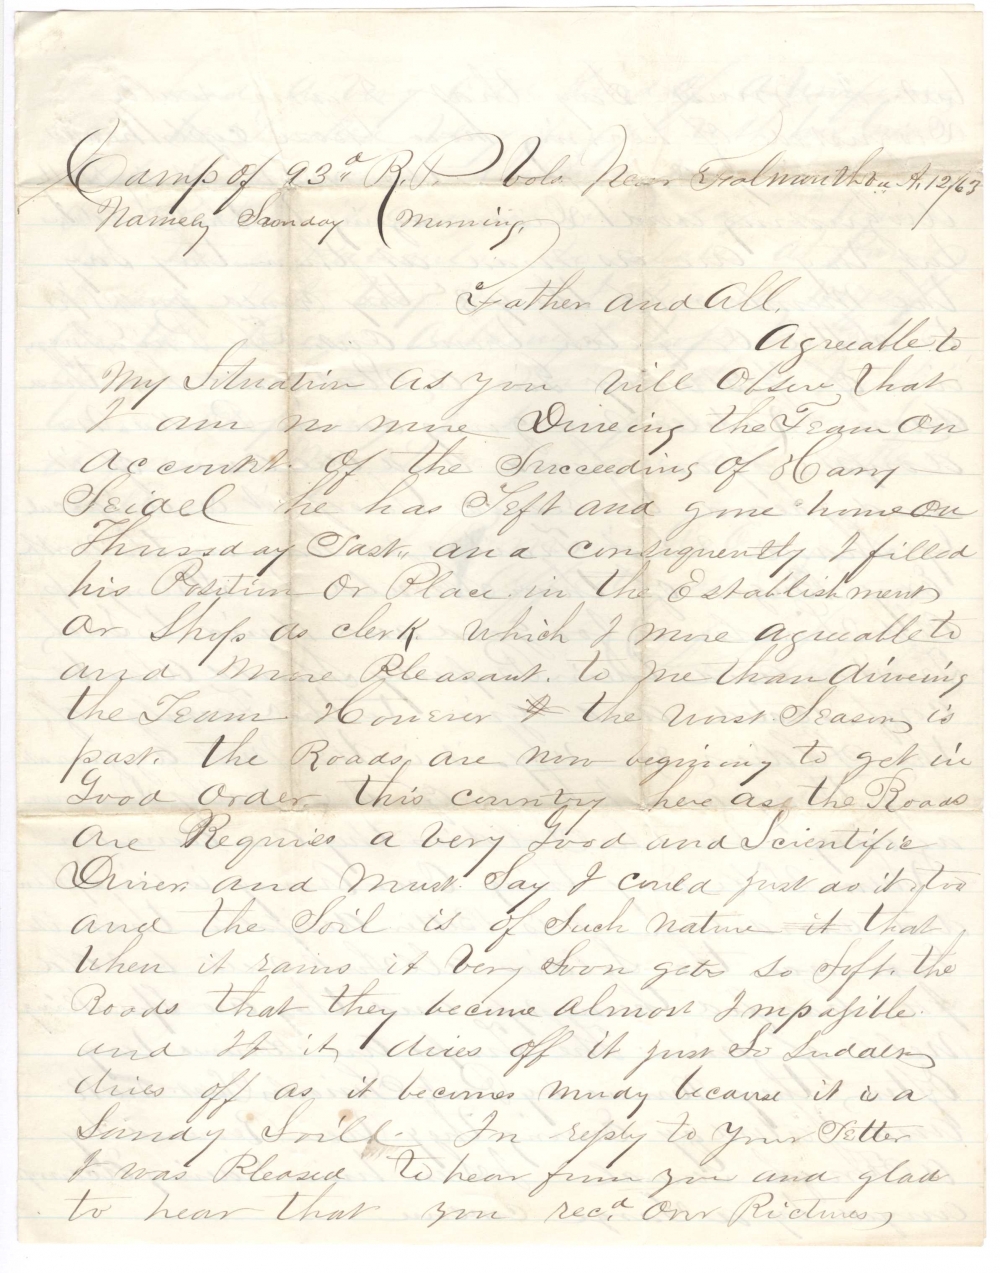 Camp of 93d R. P. Vols. Near Falmouth Va A. 12/63
Namely Sunday (Morning,
Father and All.
Agreeable to
My Situation as you will Observe that
I am no more Driveing the Team On
Account. of the Succeeding of Harry
Seidel he has Left and gone home on
Thursday Last,, and consequently I filled
his Position Or Place in the Establishment
Or Shop as clerk. Which I more agreeable to
and More Pleasant. to me than driveing
the Team However the worst Season, is
past. the Roads, are now begining to get in
Good Order, this country here as the Roads
Are Requires a very Good and Scientific
Driver. and Must Say I could just do it, too
and the Soil is of Such nature it that,
when it rains it Very Soon gets So Soft. the
Roads that they become almost Impasible.
and If it, dries off it just So Sudden,
dries off as it becomes mudy because it is a
Sandy Soill. In reply to Your Letter
I was Pleased To hear from you and glad
to hear that you rec.d Our Pictures,